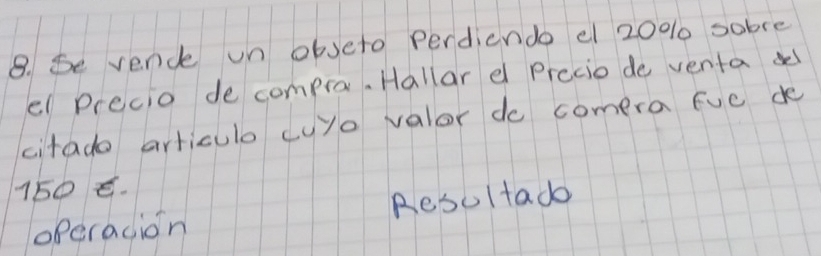 8. Se vende un objeto perdiendo el 20% sobre
el precio de compra. Hallar el precio de venta del
citado articulo cuyo valor de compra fue de
150 €.
Resultado
operación